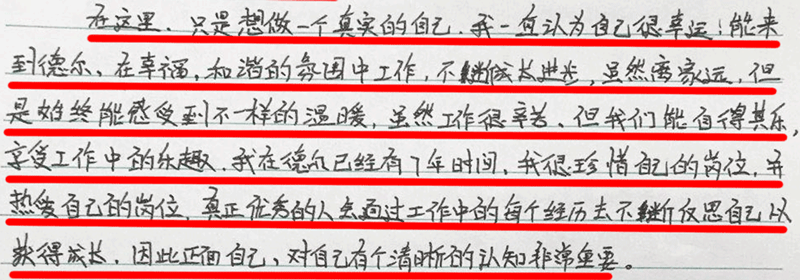 在这里、只是想做一个真实的自己. 我一直认为自己很幸运! 能来
到德尔、在幸福, 和谐的氛围中工作, 不继成长进步, 虽然离家远, 但
是始终能感受到不一样的温暖, 虽然工作很辛苦、但我们能自得其乐,
享受工作中的乐趣. 我在德尔已经有7年时间、我很珍惜自己的岗位, 并
热爱自己的岗位, 真正优秀的人会通过工作中的每个经历去不断反思自己以
获得成长, 因此正面自己、对自己有个清晰的认知非常重要。